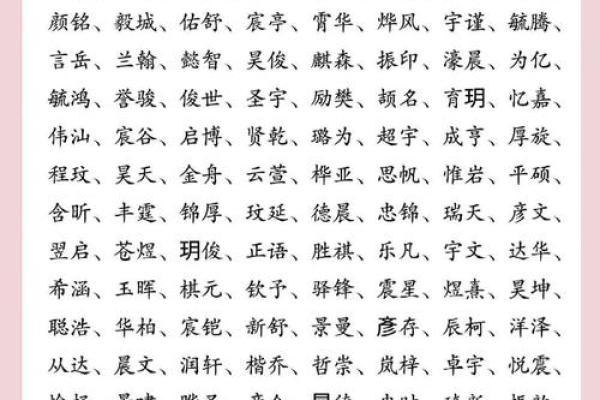 颜铭、毅城、佑舒、宸亭、霄华、烨风、宇谨、毓腾、
言岳、兰翰、懿智、昊俊、麒森、振印、濠晨、为亿、
毓鸿、誉骏、俊世、圣宇、励樊、颉名、育玥、忆嘉、
伟汕、宸谷、启博、贤乾、璐为、超宇、成亨、厚旋、
程玟、昊天、金舟、云萱、桦亚、思帆、惟岩、平硕、
含昕、丰霆、锦厚、玟延、德晨、忠锦、瑞天、彦文、
翌启、苍煜、玥俊、正语、胜祺、乐凡、宇文、达华、
希涵、玉晖、棋元、钦予、驿锋、震星、煜熹、昊坤、
聪浩、华柏、宸铠、新舒、景曼、彥存、辰柯、洋泽、
从达、晨文、润轩、楷乔、哲崇、岚梓、卓宇、悦震、